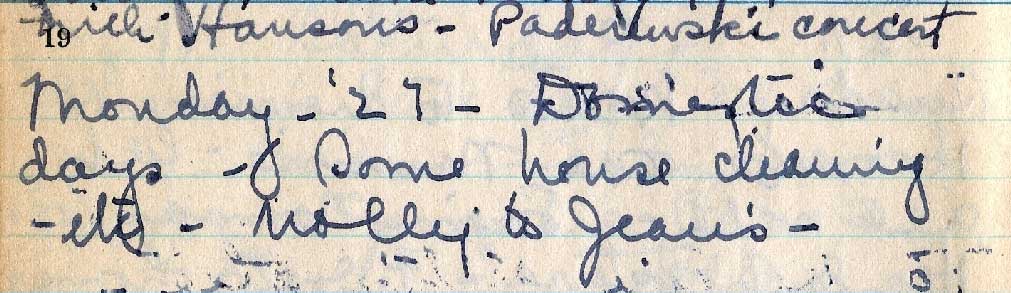 with Hansons - Paderewski concert
19
Monday - '27 - Domestic
days - Some house cleaning
- etc - Molly to Jean's -